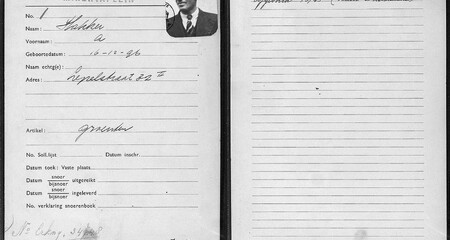 No. 1
Naam: Hakker
Voornaam: A
Geboortedatum: 16-12-96
Naam echtg(e):
Adres: Lepelstraat 82 II
Artikel: groenten
No. Soll.lijst Datum inschr.
Datum toek: Vaste plaats
Datum snoer bijsnoer uitgereikt
Datum snoer bijsnoer ingeleverd
No. verklaring snoerenboek